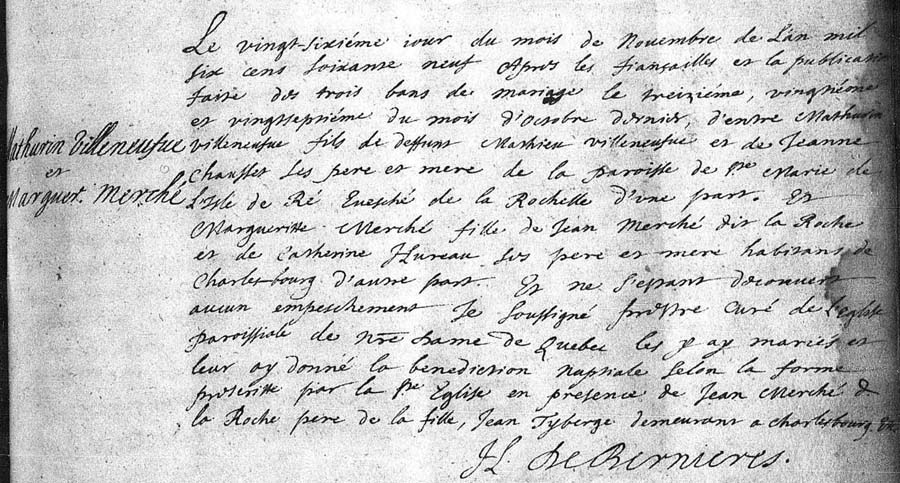 Mathurin Villeneufue
et
Marguer. Merché
Le vingt-sixiéme iour du mois de Novembre de Lan mil
six cens soixante neuf Apres les fiançailles et la publication
faite des trois bans de mariage le treiziéme, vingtiéme
et vingtseptiéme du mois d'octobre dernier, d'entre Mathurin
villeneufue fils de deffunt Mathieu villeneufue et de Jeanne
Chausset ses pere et mere de la paroisse de Ste Marie de
L'isle de Ré Euesché de la Rochelle d'une part. Et
Margueritte Merché fille de Jean Merché dit la Roche
et de Catherine Hureau ses pere et mere habitans de
Charlesbourg d'autre part. Et ne s'estant découvert
aucun empeschement Je soussigné prestre Curé de l'eglise
paroissiale de Nre Dame de Quebec les y ay mariés et
leur ay donné la benediction nuptiale selon la forme
prescritte par la Ste Eglise en presence de Jean Merché de
la Roche pere de la fille, Jean Tyberge demeurant a Charlesbourg
H. De Bernieres.